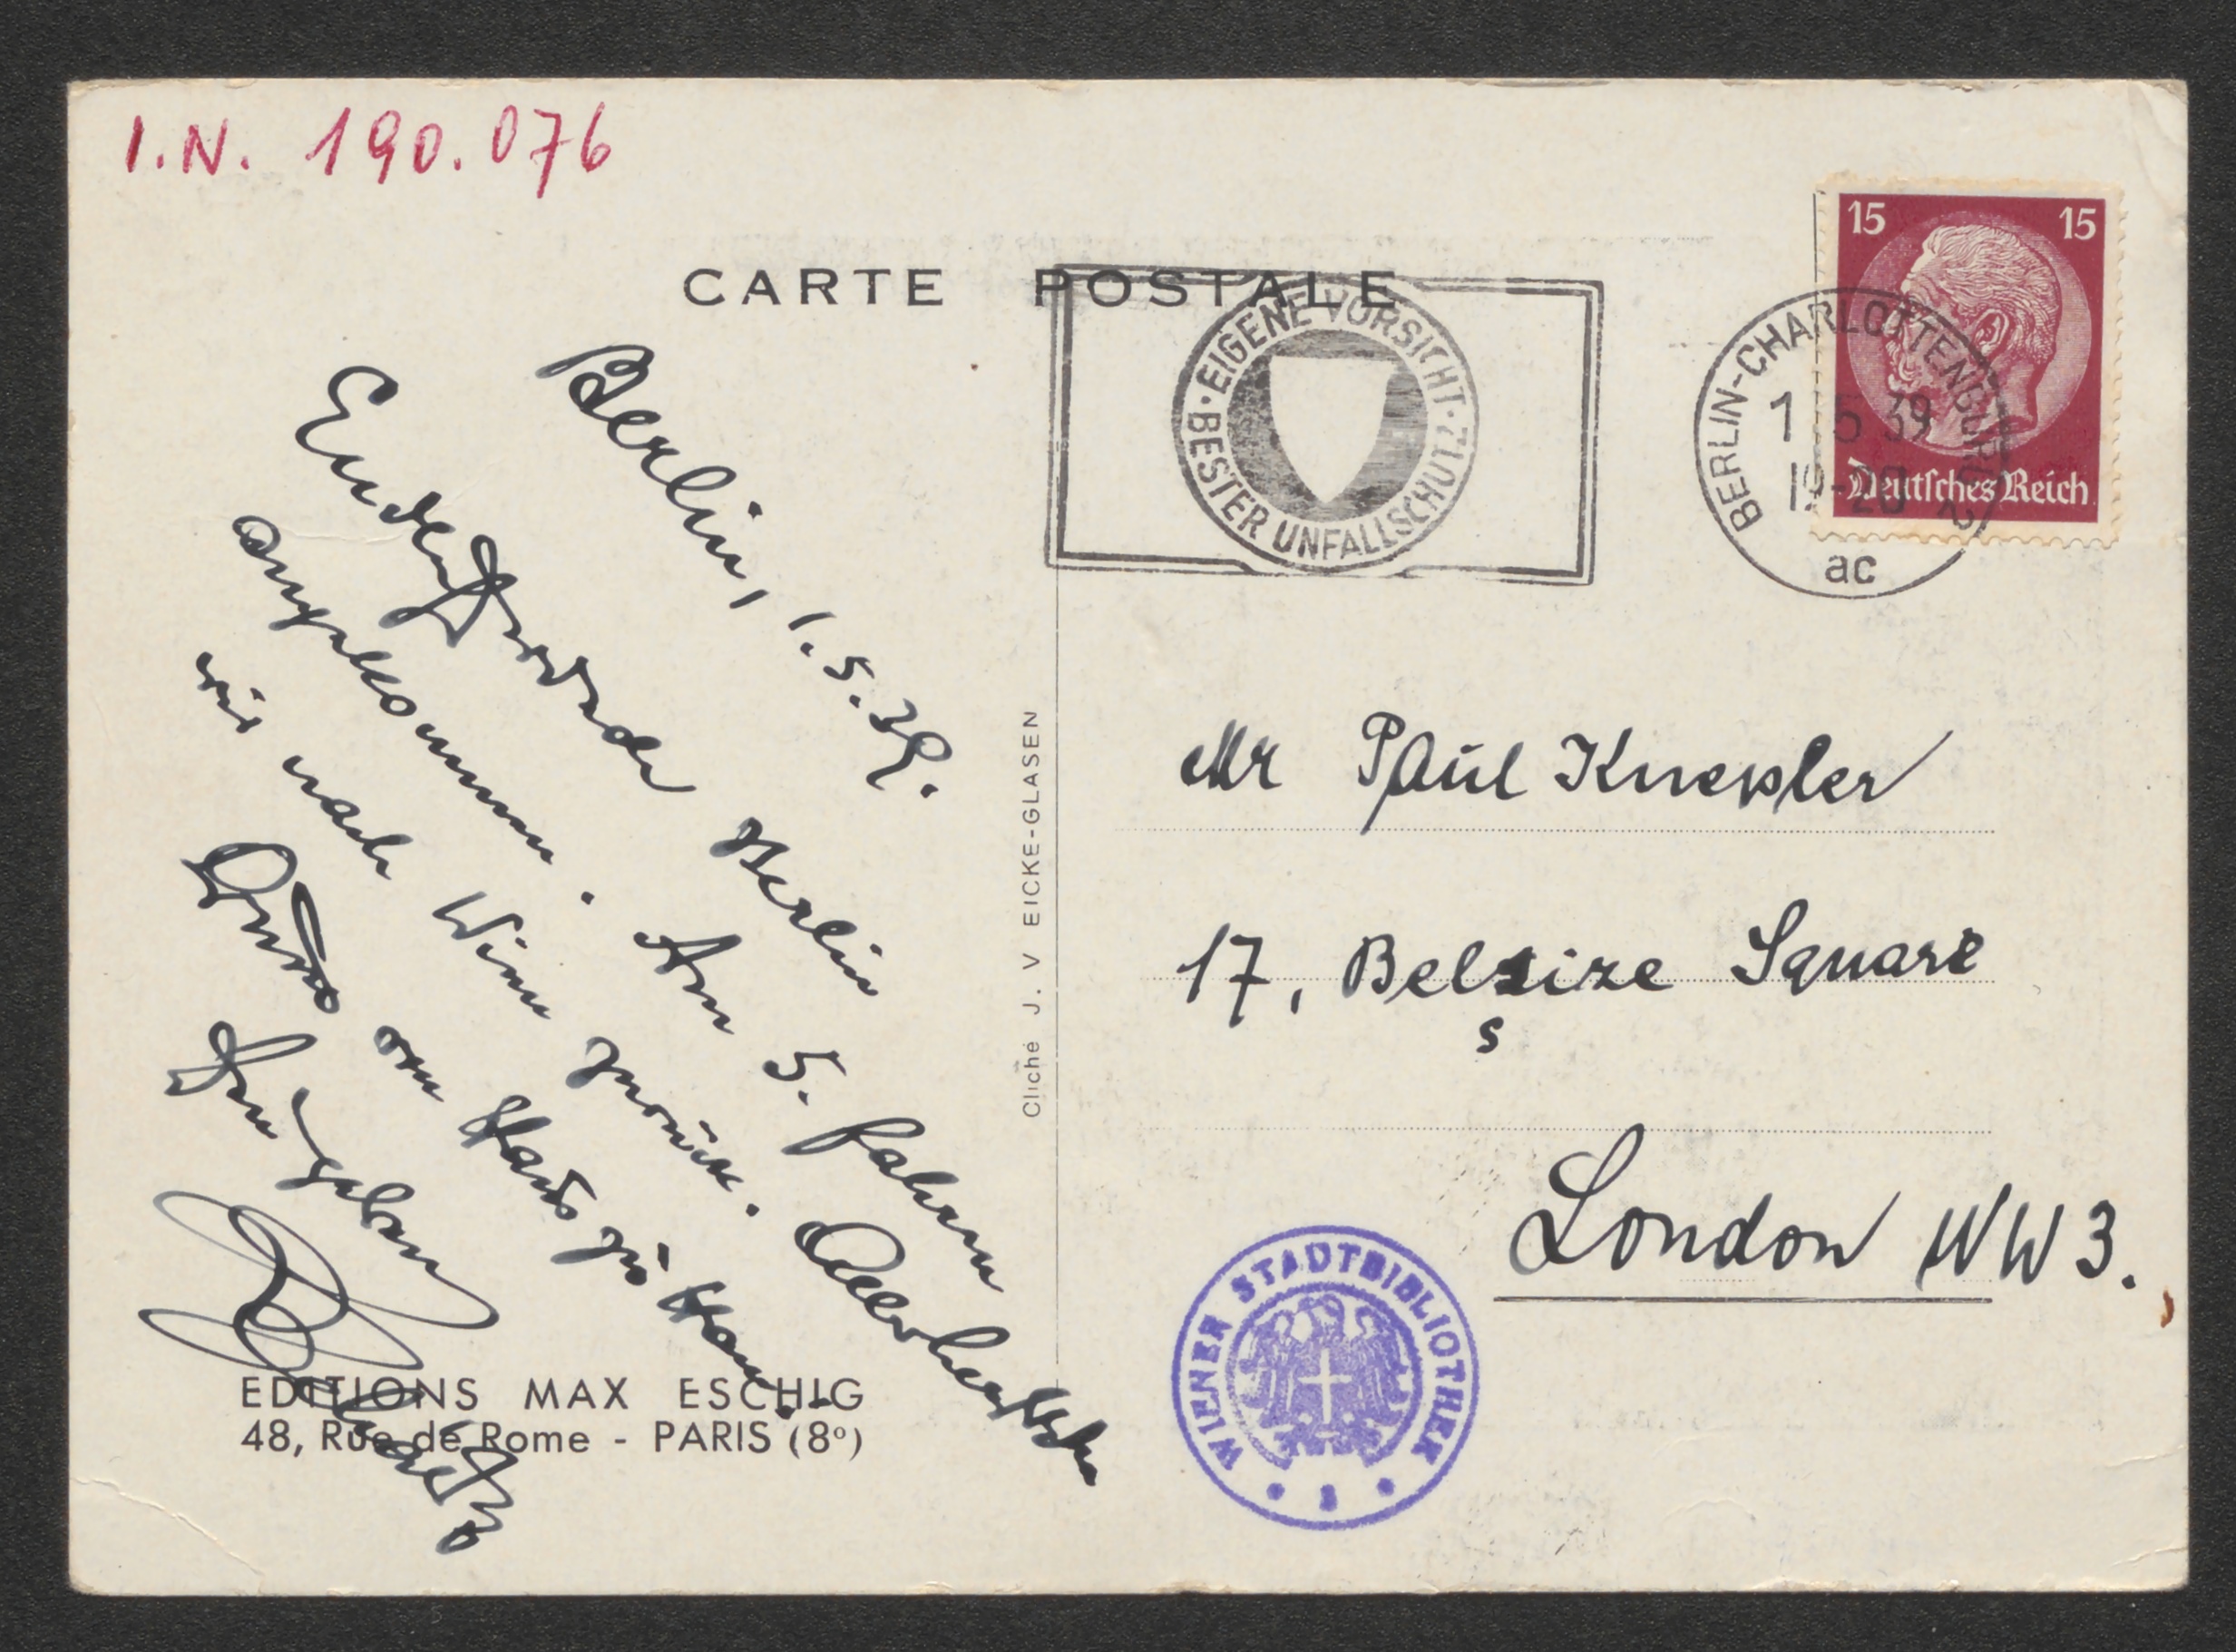 I.N. 190.076
CARTE POSTALE
EIGENE VORSICHT · BESTER UNFALLSCHUTZ ·
15 15
Deutsches Reich
BERLIN-CHARLOTTENBURG 2
1.5.39
19-20
ac
Berlin, 1.5.39.
Endesgefertigter Berlin
angekommen. Am 5. fahren
wir nach Wien zurück. Allerherzlichste
Grüße von Haus zu Haus
Ihr
Cliché J. V EICKE-GLASEN
Mr Paul Knepler
17, Belsize Square
s
London NW 3.
EDITIONS MAX ESCHIG
48, Rue de Rome - PARIS (8º)
WIENER STADTBIBLIOTHEK